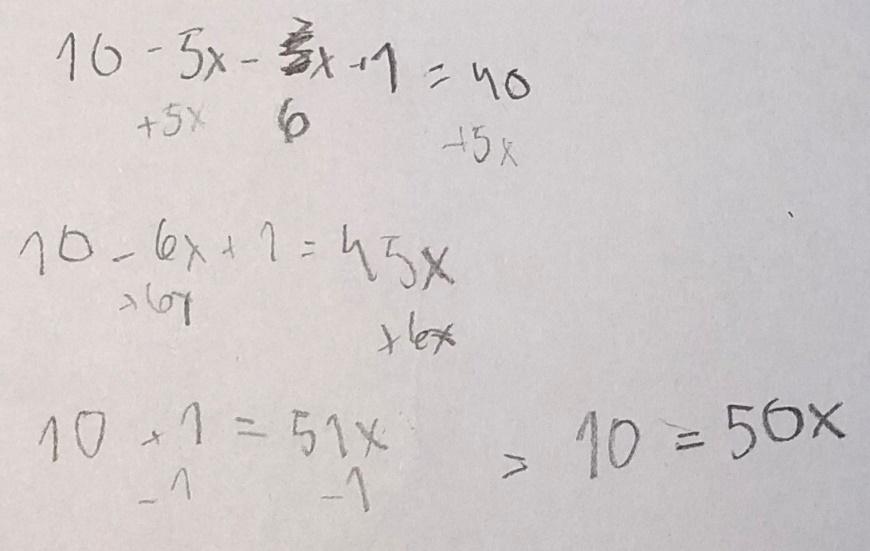 10 - 5x - x + 1 = 40
+5x 6 +5x
10 - 6x + 1 = 45x
+6x +6x
10 + 1 = 51x > 10 = 50x
-1 -1